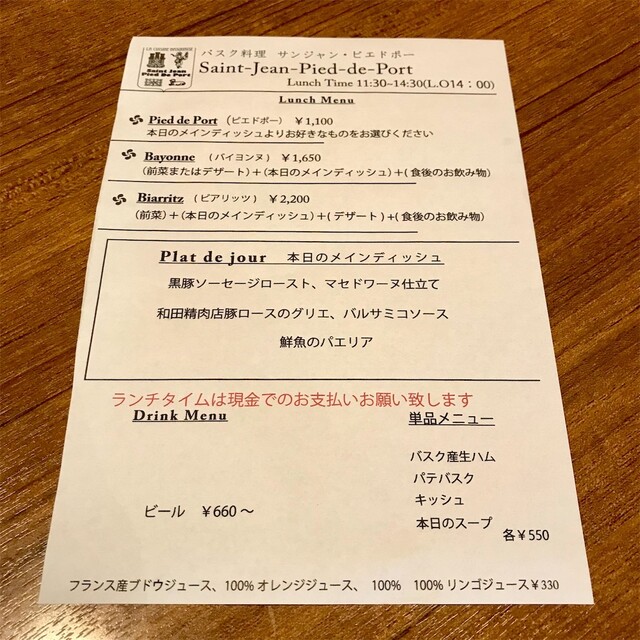 LA CUISINE BASQUAISE
Saint Jean
Pied De Port
バスク料理 サンジャン・ピエドポー
Saint-Jean-Pied-de-Port
Lunch Time 11:30~14:30(L.O14：00)
Lunch Menu
Pied de Port (ピエドポー) ¥1,100
本日のメインディッシュよりお好きなものをお選びください
Bayonne (バイヨンヌ) ¥1,650
(前菜またはデザート)+(本日のメインディッシュ)+(食後のお飲み物)
Biarritz (ビアリッツ) ¥2,200
(前菜)+(本日のメインディッシュ)+(デザート)+(食後のお飲み物)
Plat de jour 本日のメインディッシュ
黒豚ソーセージロースト、マセドワーヌ仕立て
和田精肉店豚ロースのグリエ、バルサミコソース
鮮魚のパエリア
ランチタイムは現金でのお支払いお願い致します
Drink Menu
単品メニュー
バスク産生ハム
パテバスク
キッシュ
本日のスープ
ビール ¥660～
各¥550
フランス産ブドウジュース、100%オレンジジュース、 100% 100%リンゴジュース¥330